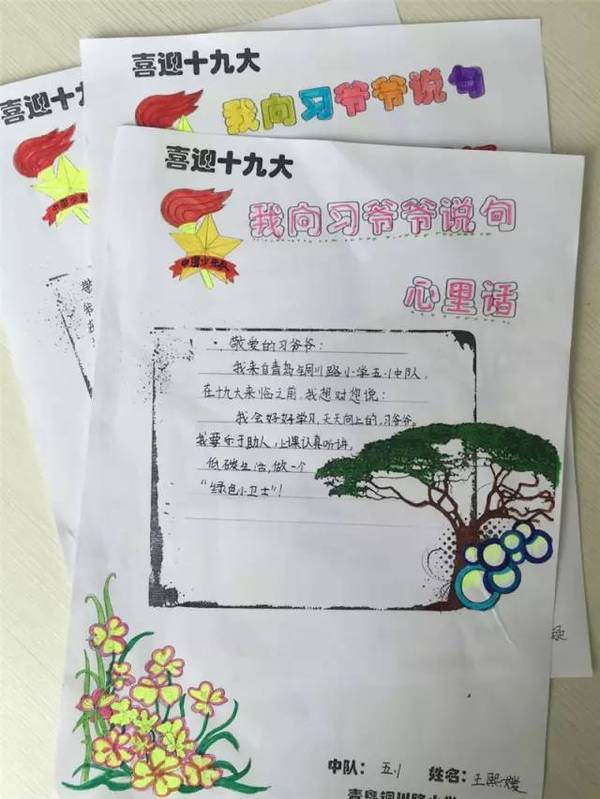 喜迎十九大
我向习爷爷说句
喜迎十
喜迎十九大
我向习爷爷说句
心里话
敬爱的习爷爷:
我来自青岛铜川路小学五.1中队,
在十九大来临之前,我想对您说:
我会好好学习,天天向上的,习爷爷。
我要乐于助人,上课认真听讲,
低碳生活,做一个
“绿色小卫士”!
中队: 五.1 姓名: 王熙媛
青岛铜川路小学